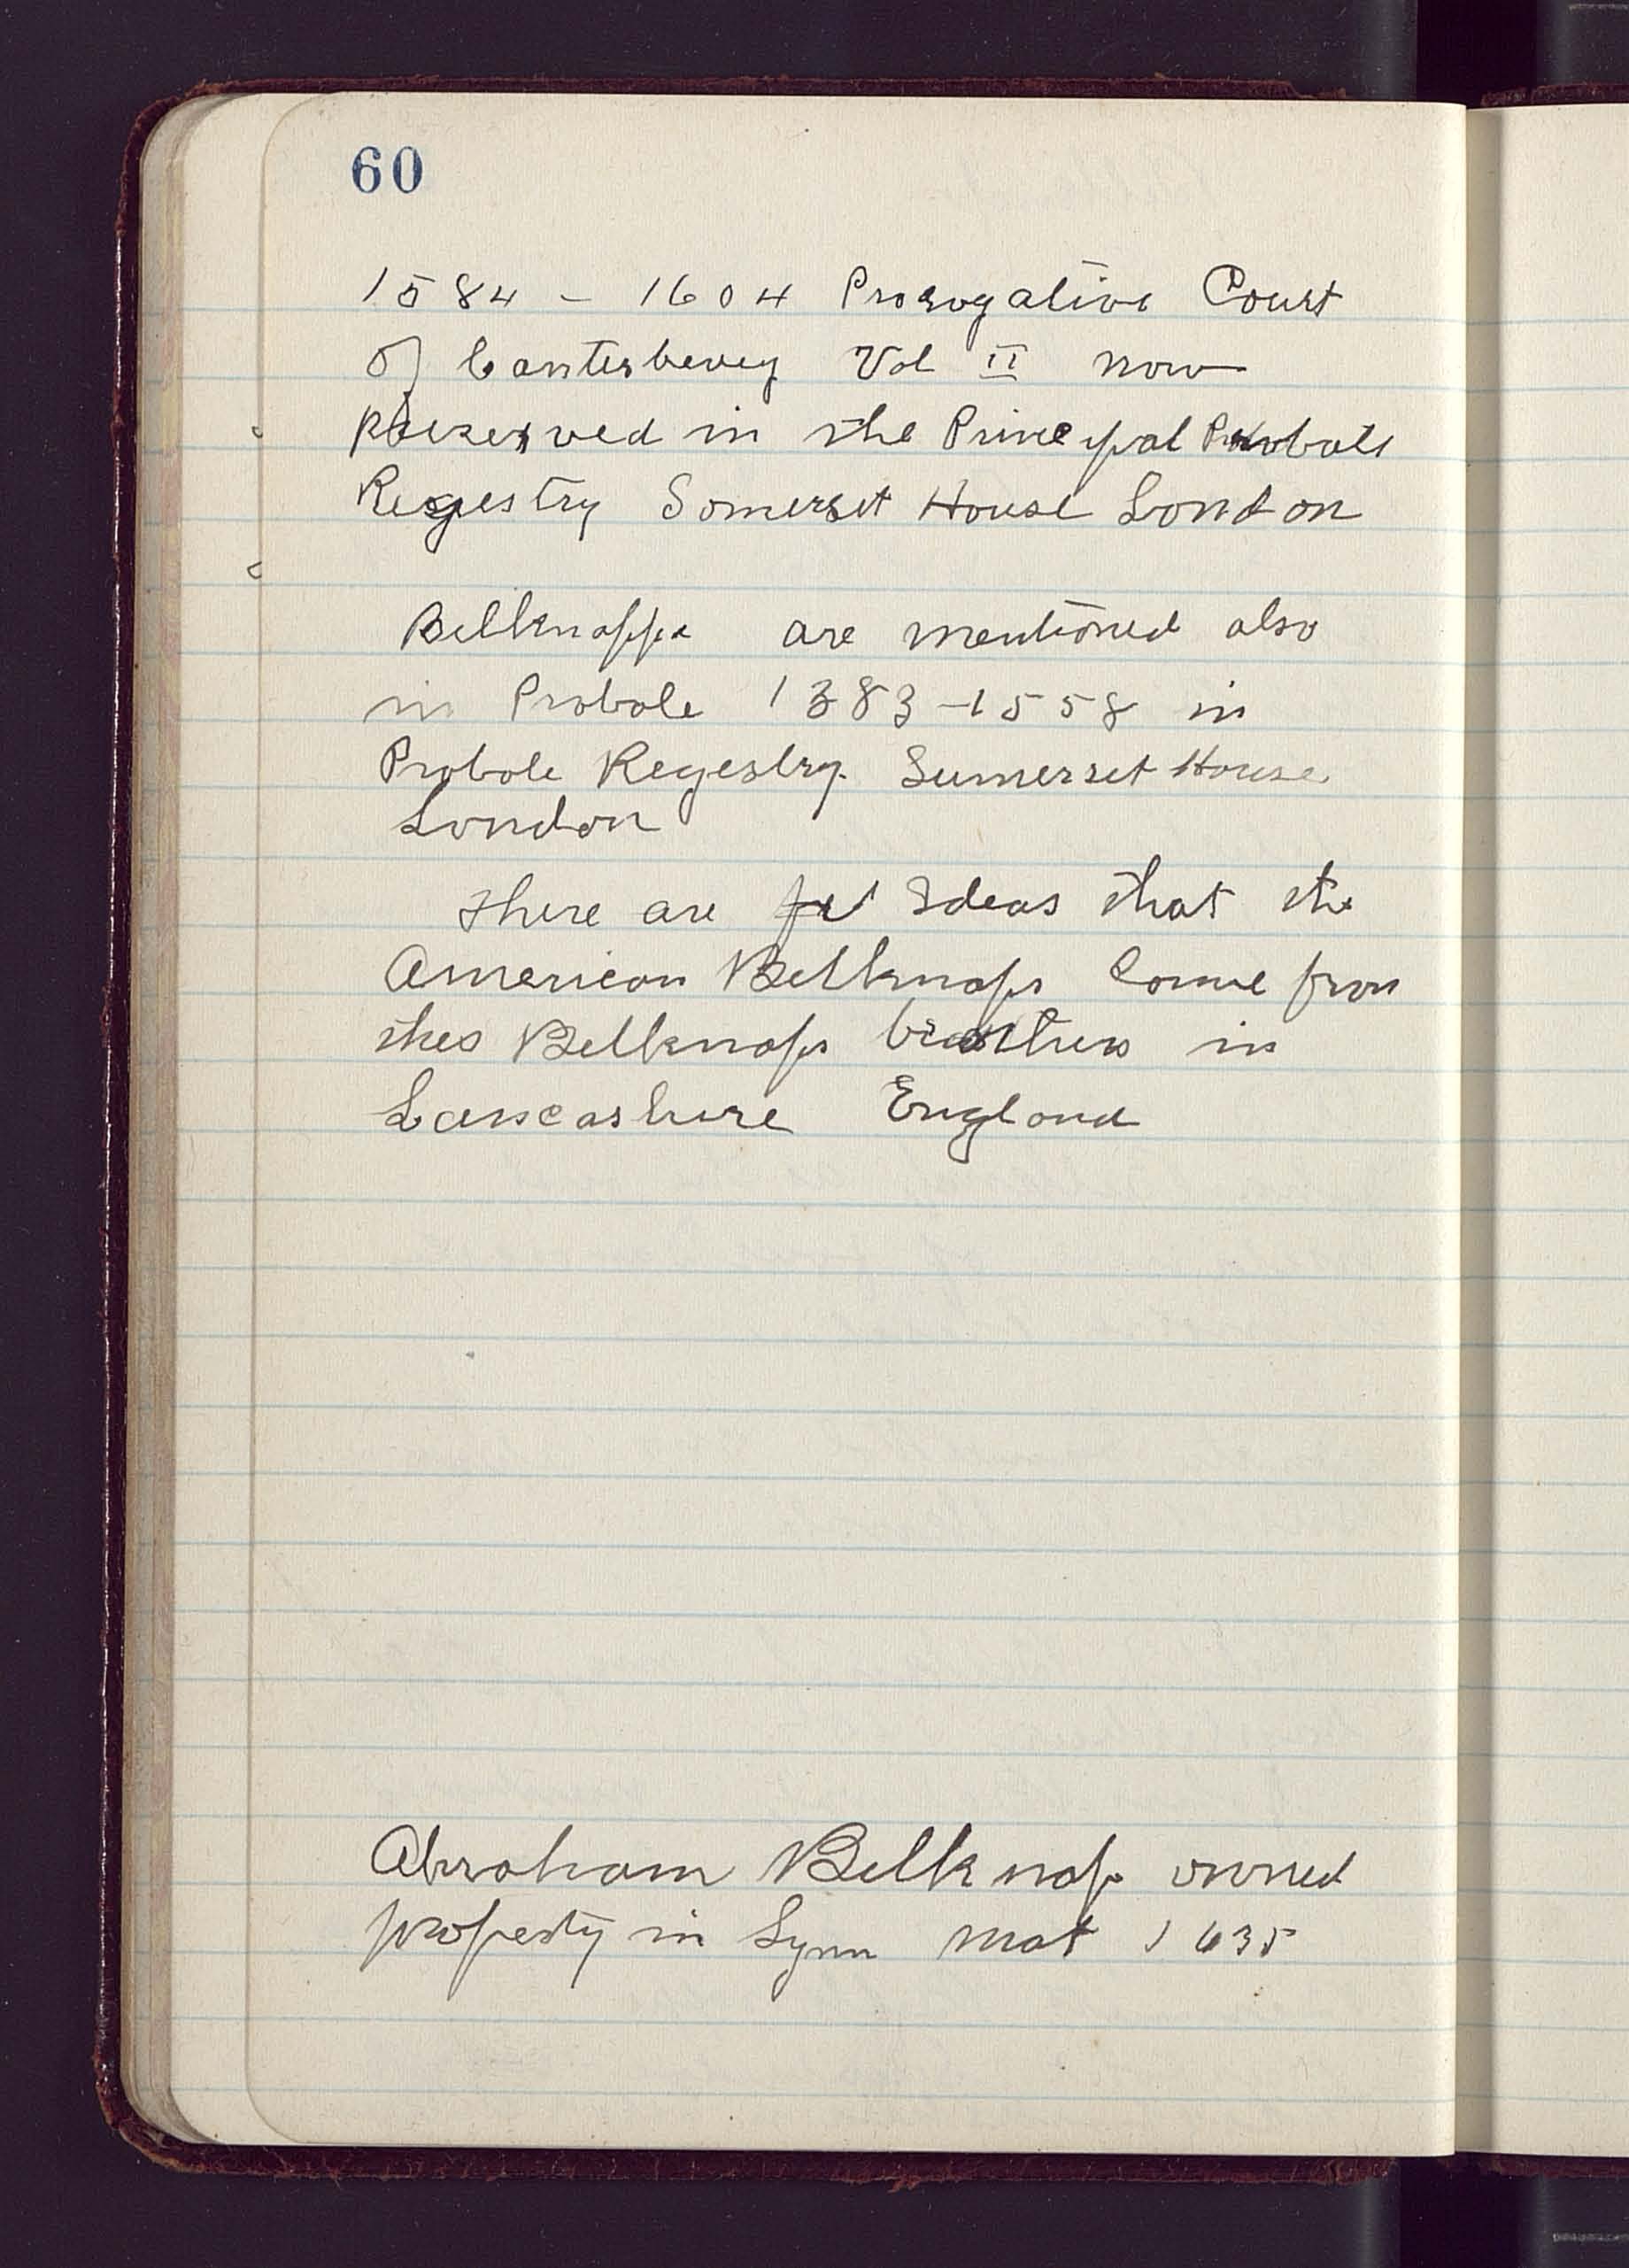 60
1584 - 1604 Prorogative Court
of Canterbevey Vol II now
preserved in the Principal Probate
Regestry Somerset House London
Bellknapps are mentioned also
in Probate 1383-1558 in
Probate Regestry Sumerset House
London
There are Ideas that the
American Bellknaps Come from
thes Bellknaps brothers in
Lancashire England
Abraham Bellknap owned
property in Lynn mat 1635